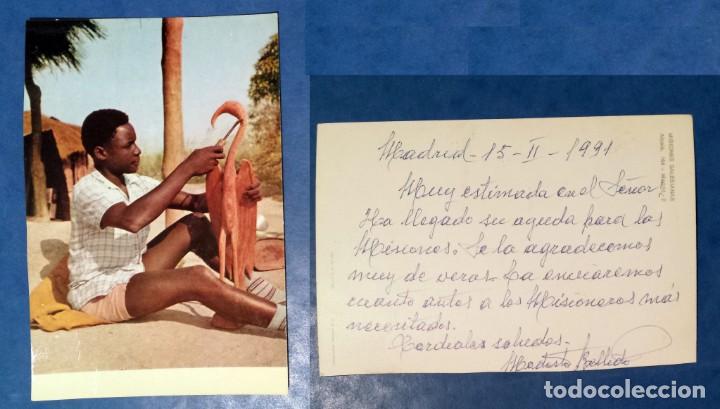 MISIONES SALESIANAS
Alcalá, 164 - Madrid
Madrid - 15 - II - 1991
Muy estimada en el Señor
Ha llegado su ayuda para las
Misiones. Se la agradecemos
muy de veras. La enviaremos
cuanto antes a los Misioneros más
necesitados.
Cordiales saludos.
Bellido
todocoleccion.net